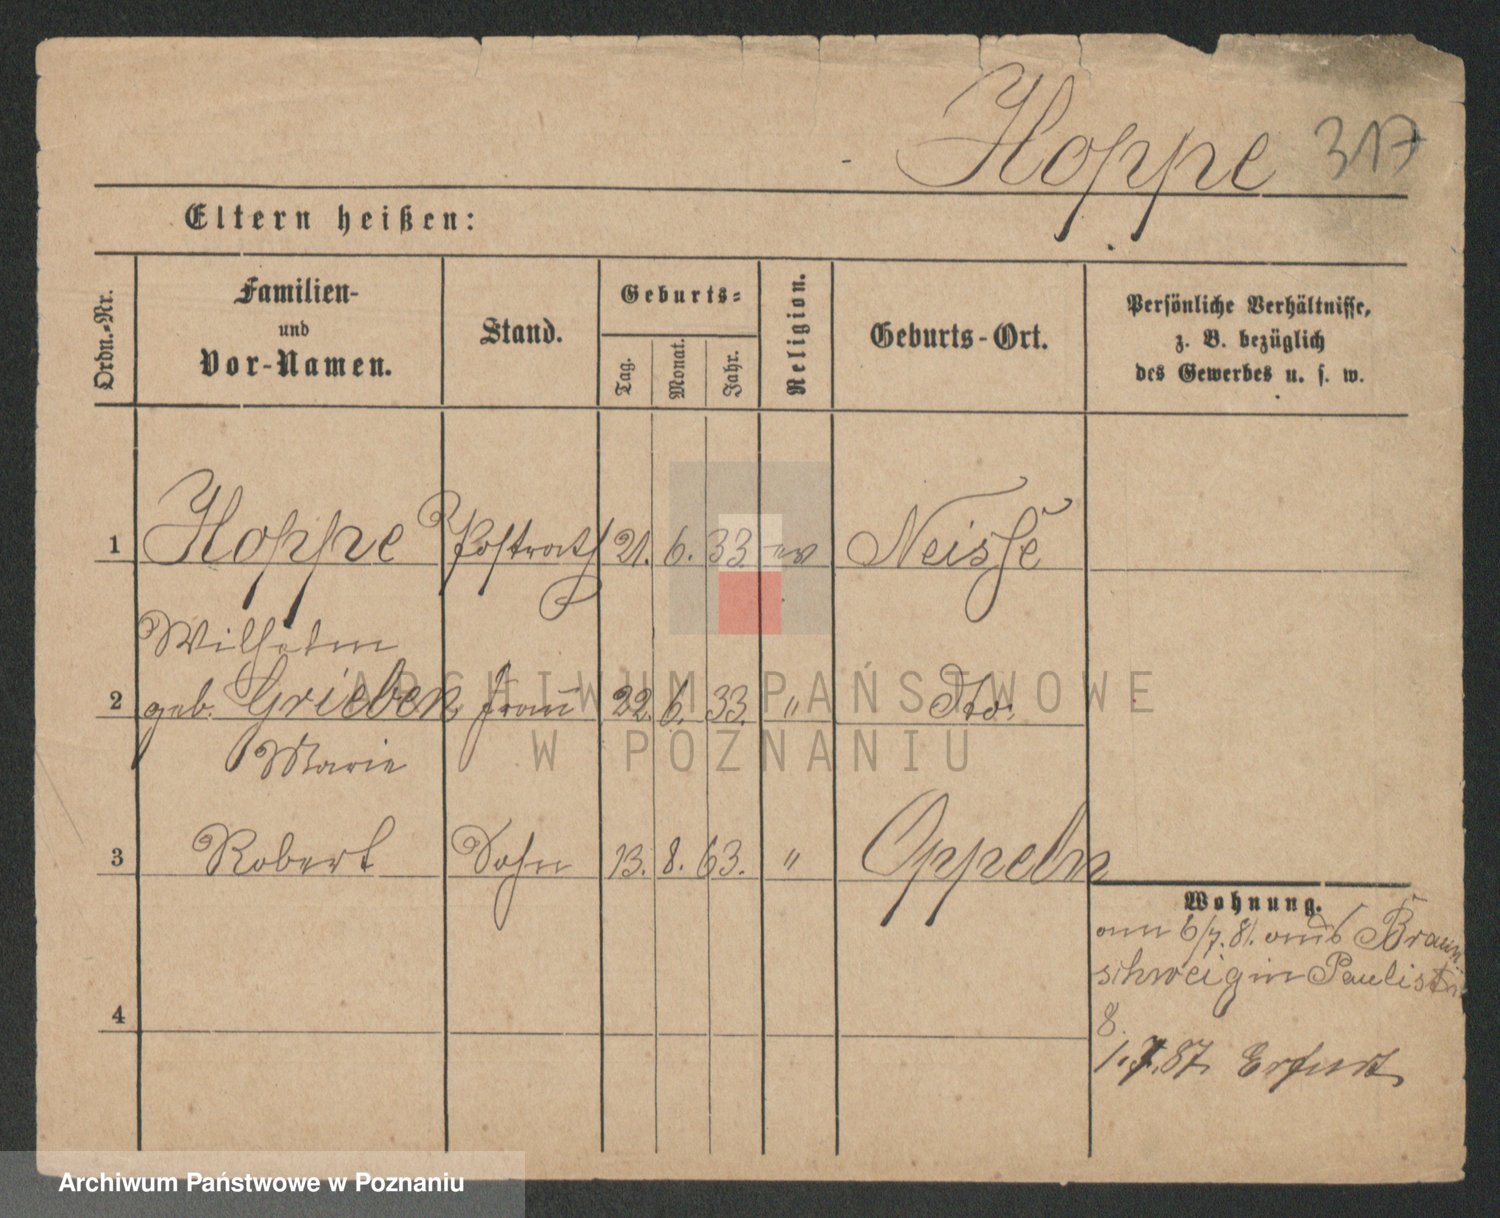 Hoppe 317
Eltern heißen:
Ordn.-Nr.
Familien-
und
Vor-Namen.
Stand.
Geburts-
Tag.
Monat.
Jahr.
Religion.
Geburts-Ort.
Persönliche Verhältnisse,
z. B. bezüglich
des Gewerbes u. s. w.
1 Hoppe Postrath 21. 6. 33. ev Neisse
Wilhelm
2 geb. Grieben Frau 22. 6. 33. " do.
Marie
3 Robert Sohn 13. 8. 63. " Oppeln
Wohnung.
am 6/7. 81. aus Braun
schweig in Paulist
8.
4
1.7.87. Erfurt
ARCHIWUM PAŃSTWOWE
W POZNANIU
Archiwum Państwowe w Poznaniu